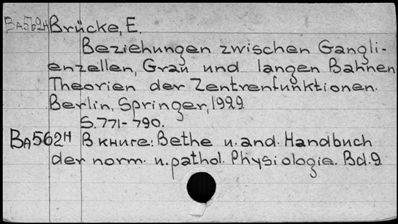 BA562H Brücke, E.
Beziehungen zwischen Gangli-
enzellen, Grau und langen Bahnen
Theorien der Zentrenfunktionen.
Berlin, Springer, 1929
S. 771-790.
BA562H В книге: Bethe u. and. Handbuch
der norm. u. pathol. Physiologie. Bd. 9